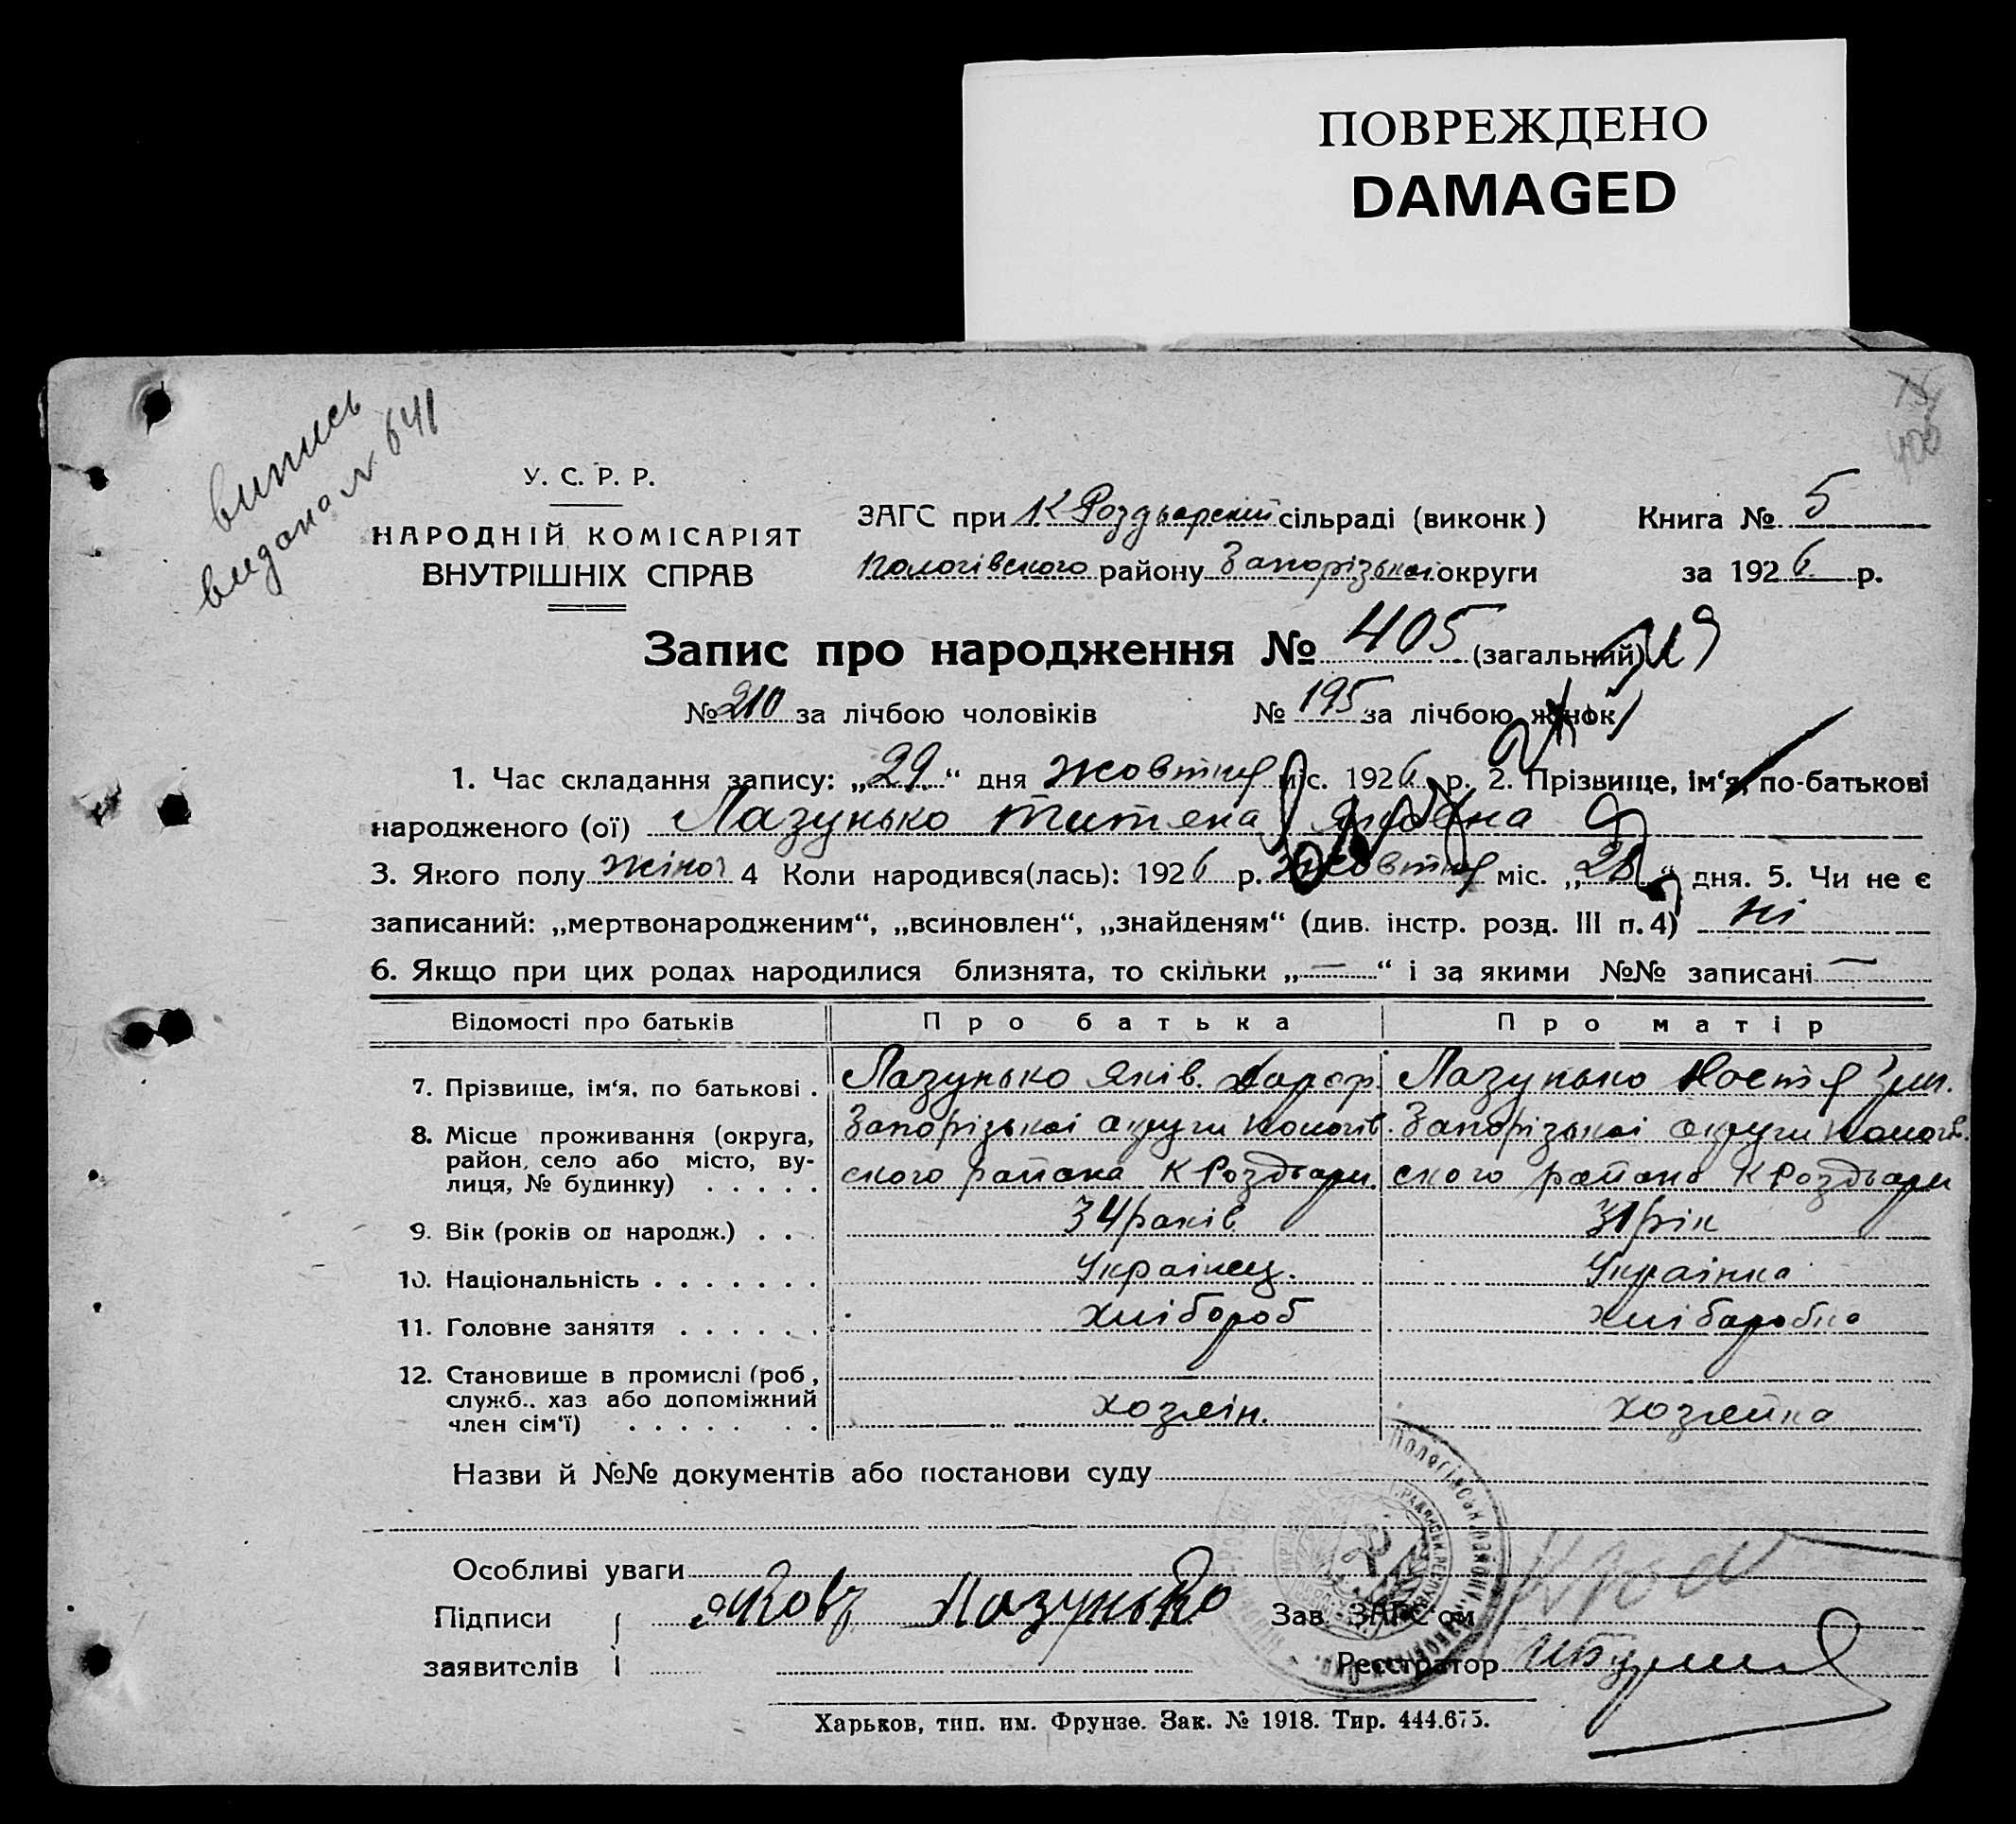 ПОВРЕЖДЕНО
DAMAGED
випись
видана № 641
У. С. Р. Р.
НАРОДНІЙ КОМІСАРІЯТ
ВНУТРІШНІХ СПРАВ
ЗАГС при К Роздорский сільраді (виконк)
Книга № 5
Пологівского району Запорізькоі округи
за 1926 р.
Запис про народження № 405 (загальний)
№ 210 за лічбою чоловіків № 195 за лічбою жінок
1. Час складання запису: „29“ дня жовтня міс. 1926 р. 2. Прізвище, ім‘я, по-батькові
народженого (ої) Лазунько Титяна Яковна
3. Якого полу жіноі 4 Коли народився(лась): 1926 р. жовтня міс. „28“ дня. 5. Чи не є
записаний: „мертвонародженим“, „всиновлен“, „знайденям“ (див. інстр. розд. III п. 4) ні
6. Якщо при цих родах народилися близнята, то скільки „—“ і за якими №№ записані —
Відомості про батьків
Про батька
Про матір
7. Прізвище, ім‘я, по батькові .
Лазунько Яків
Лазунько Настя
8. Місце проживання (округа,
район, село або місто, ву-
лиця, № будинку) . . . . .
Запорізькоі округи Пологів-
ского района К Роздори
Запорізькоі округи Пологів-
ского района К Роздори
9. Вік (років од народж.) . . .
34 років
31 рік
10. Національність . . . . . . .
Украінец.
Украінка
11. Головне заняття . . . . . .
хлібороб
хліборобка
12. Становище в промислі (роб,
служб., хаз або допоміжний
член сім‘ї) . . . . . . .
хозяін.
хозяйка
Назви й №№ документів або постанови суду
Особливі уваги
Підписи
заявителів
Яковъ Лазунько
Зав. ЗАГС‘ом
Реєстратор
Харьков, тип. им. Фрунзе. Зак. № 1918. Тир. 444.675.